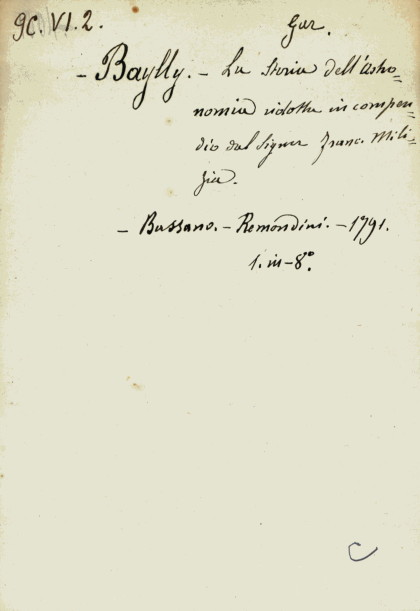 9C. VI. 2.
Gar.
- Baylly. - La Storia dell'astro=
nomia ridotta in compen=
dio dal Signor Franc. Mili=
zia.
- Bassano. - Remondini. - 1791.
1. in - 8.°
C